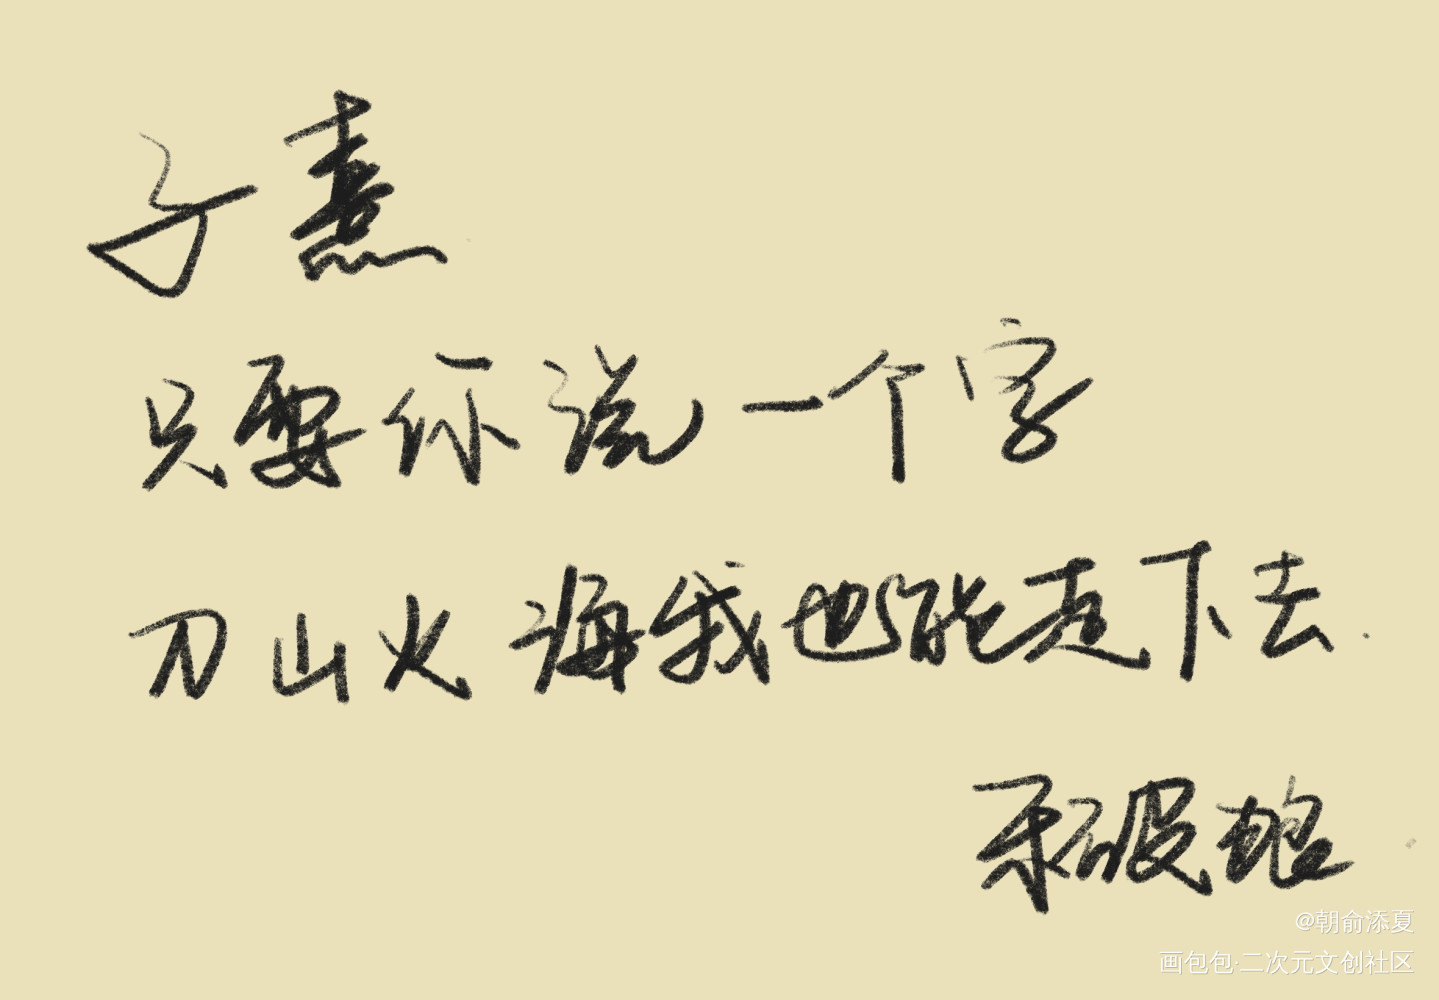 子熹
只要你说一个字
刀山火海我也能走下去.
米破晓
@朝俞添夏
画包包·二次元文创社区